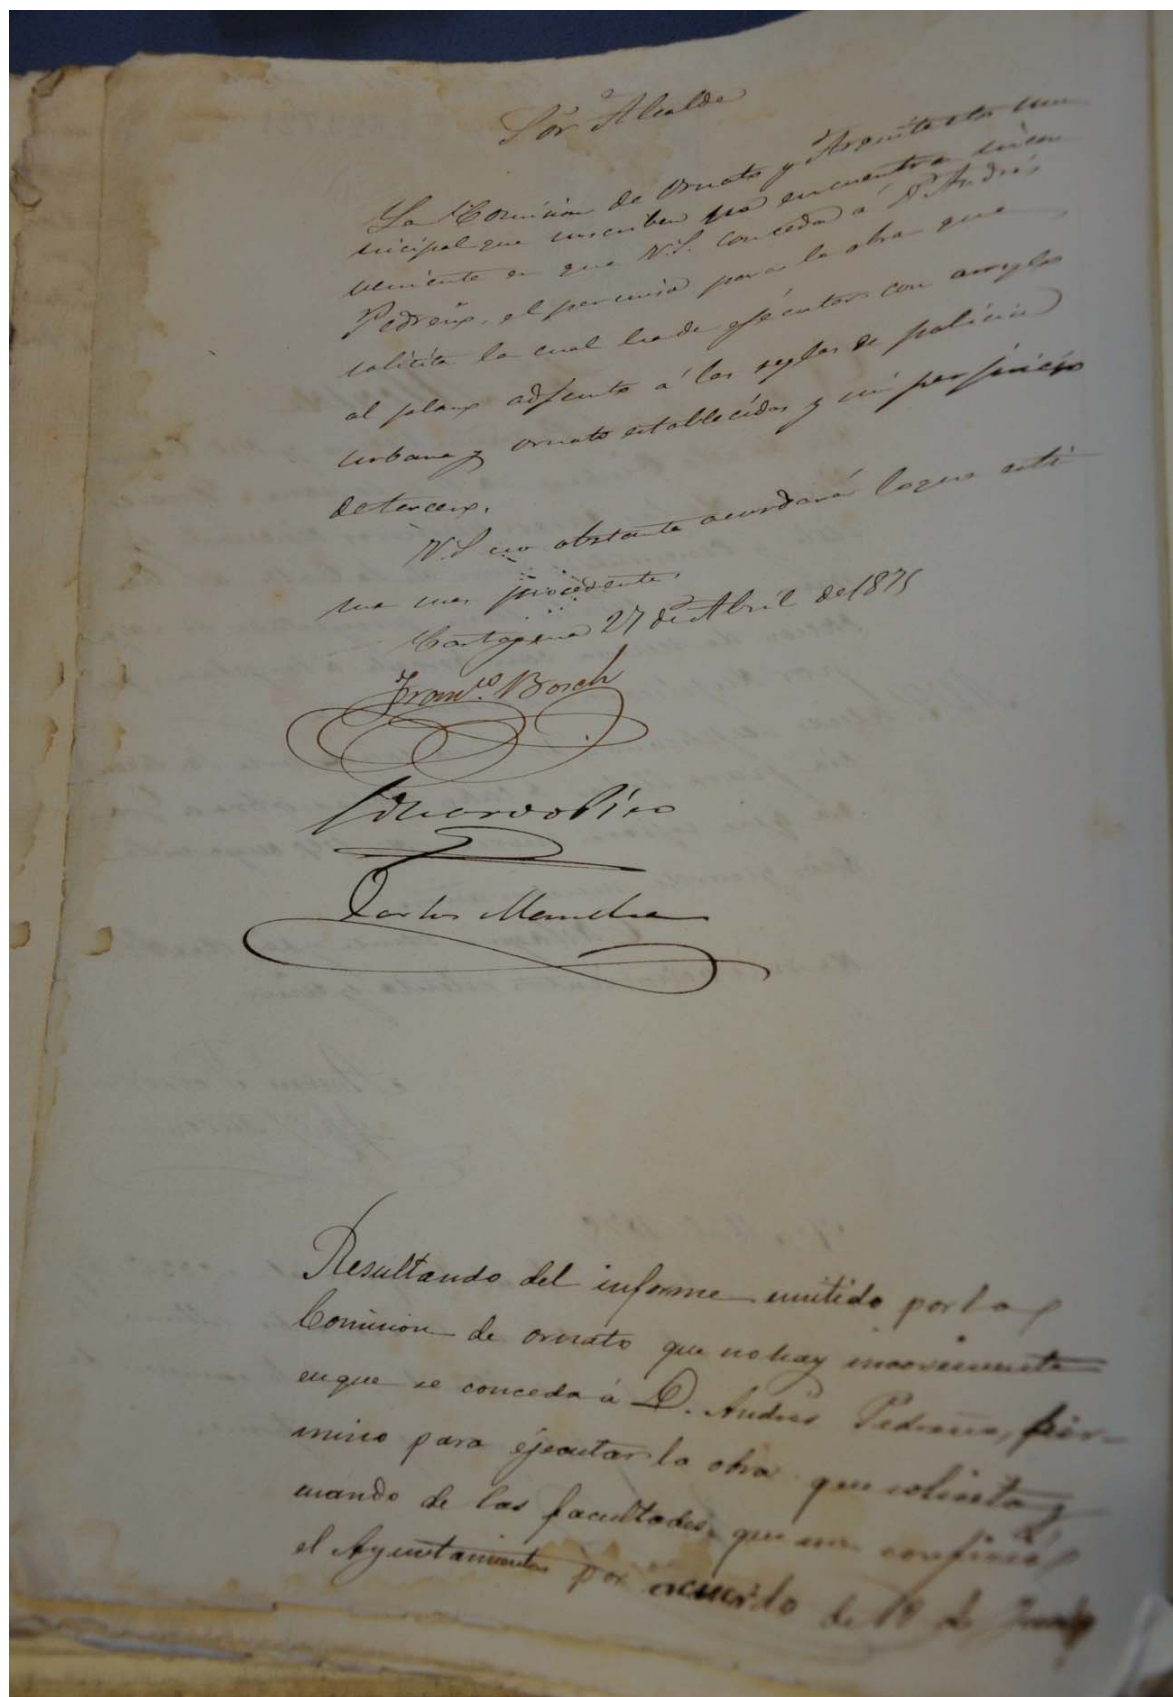 Sor. Alcalde
La Comision de ornato y Arquitecto mu
nicipal que suscriben no encuentra incon
veniente en que V.S. conceda á D. Andrés
Pedreño, el permiso para la obra que
solicita la cual ha de ejecutar con arreglo
al plano adjunto á las reglas de policia
urbana y ornato establecidas y sin perjuicio
de tercero.
V.S. no obstante acordará lo que esti
me mas procedente.
Cartagena 27 de Abril de 1875
Franco. Bosch
Eduardo Pico
Carlos Mancha
Resultando del informe emitido por la
Comision de ornato que no hay inconveniente
en que se conceda á D. Andres Pedreño, per-
miso para ejecutar la obra que solicita y
usando de las facultades que me confirió
el Ayuntamiento por acuerdo de 19 de Junio